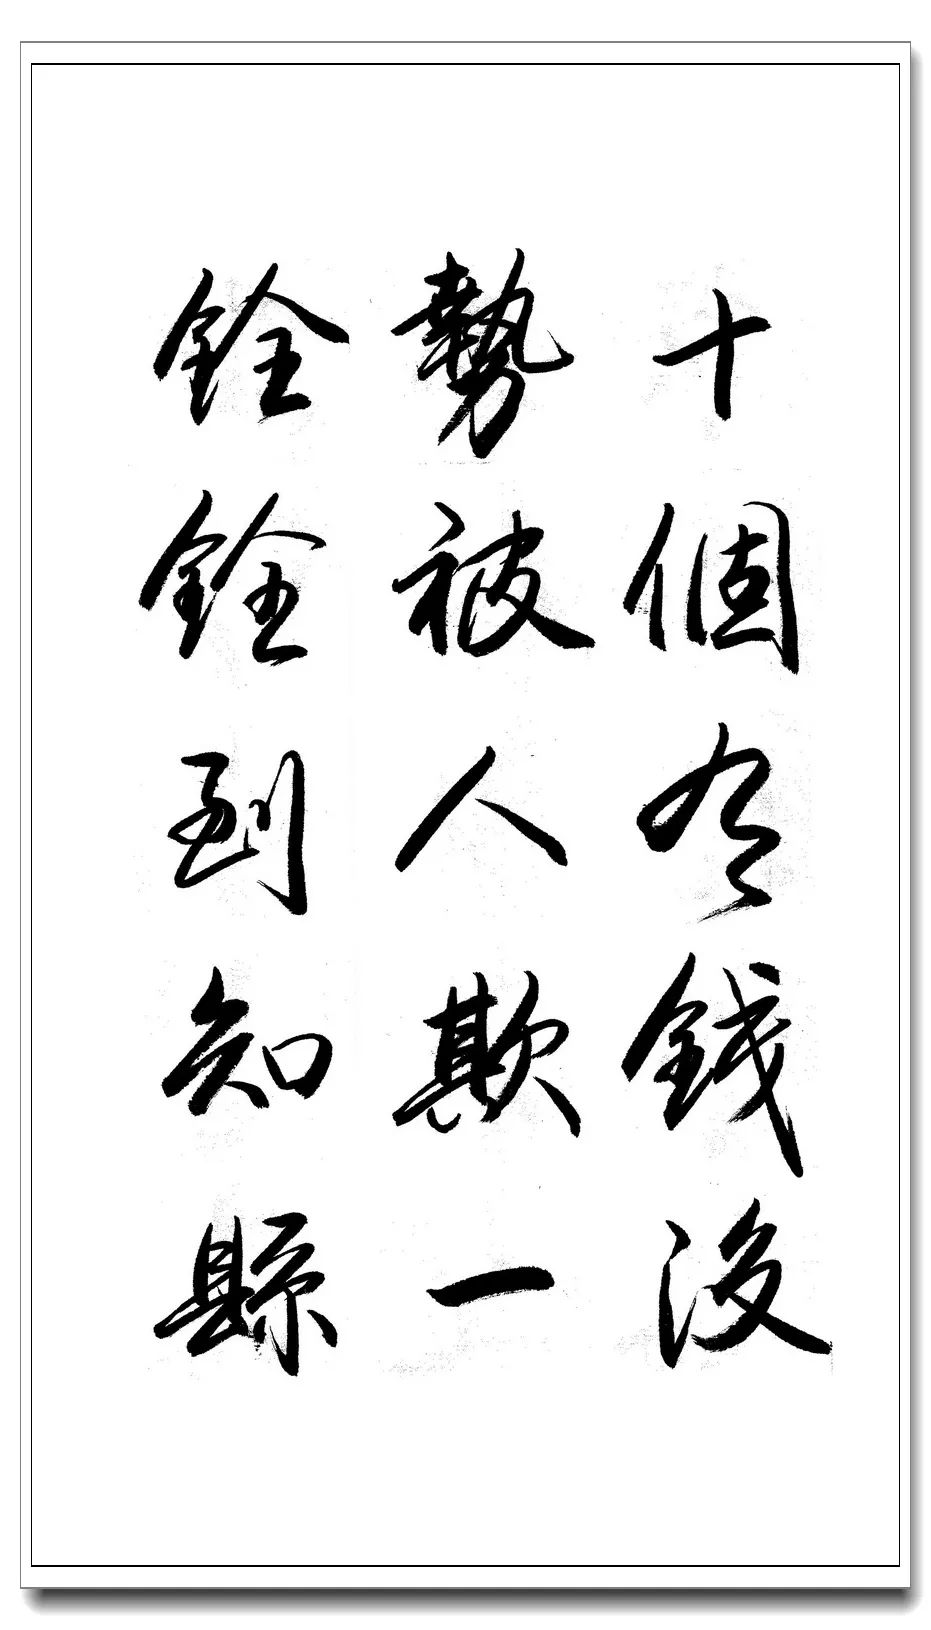 十個有錢沒
勢被人欺一
銓銓到知縣